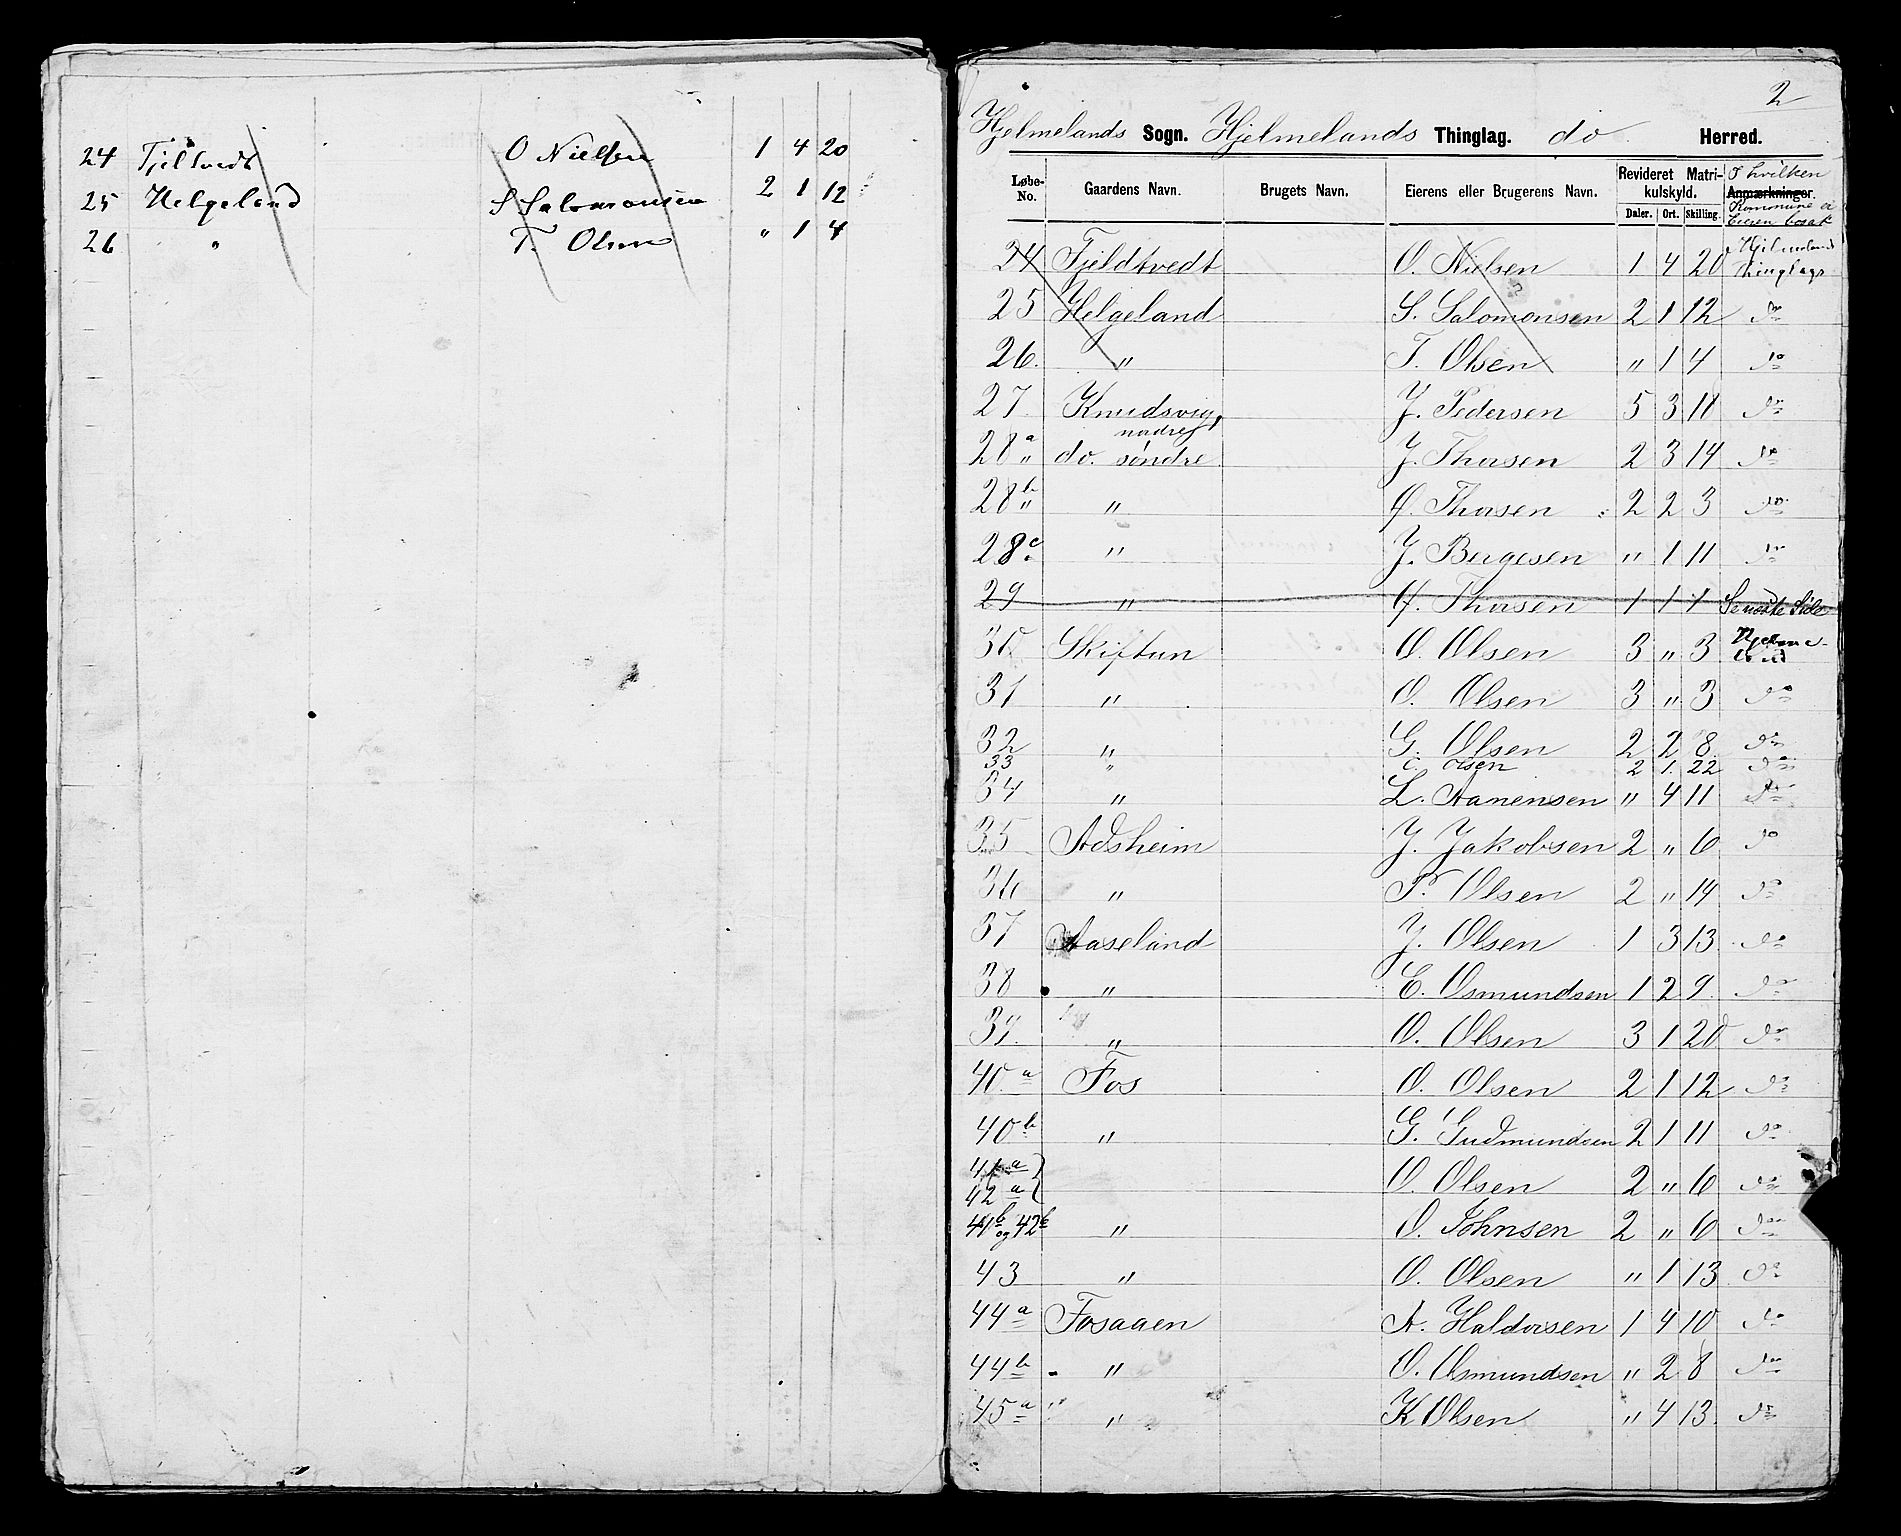 24 Fjeltvedt O Nielsen 1 4 20
25 Helgeland S Salomonsen 2 1 12
26 " T. Olsen " 1 4
2
Hjelmelands Sogn. Hjelmelands Thinglag. do Herred.
Løbe-No. Gaardens Navn. Brugets Navn. Eierens eller Brugerens Navn. Revideret Matrikulskyld. Daler. Ort. Skilling. Anmærkninger. I hvilken Kommune er Eieren bosat
24 Fjeldtvedt O. Nielsen 1 4 20 Hjelmelands Thinglags
25 Helgeland S. Salomonsen 2 1 12 do
26. " T. Olsen " 1 4 do
27 Knudsvig, nordre J. Pedersen 5 3 18 do
28 a " do. søndre J. Thorsen 2 3 14 do
28 b " " O. Thorsen 2 2 3 do
28 c " J. Bergesen " 1 11 do
29 " O. Thorsen 1 1 1 Se næste Side
30 Skiftun O. Olsen 3 " 3 Hjelmeland
31 " O. Olsen 3 " 3 do
32 " G. Olsen 2 2 8 do
33 " C. Olsen 2 1. 22 do
34 " L. Aanensen " 4 11 do
35 Adsheim J. Jakobsen 2 " 6 do
36 " P. Olsen 2 " 14 do
37 Aaseland J. Olsen 1 3 13 do
38 " E. Osmundsen 1 2 9. do
39. " O. Olsen 3 1 20 do
40 a Fos O. Olsen 2 1 12 do
40 b " G. Gudmundsen 2 1 11 do
41 a
42 a O. Olsen 2 " 6 do
41 b og 42 b " O. Johnsen 2 " 6 do
43 " O. Olsen " 1 13 do
44 a Fosaaen A. Haldorsen 1 4 10 do
44 b " O. Osmundsen " 2 8 do
45 a " K Olsen " 4 13. do